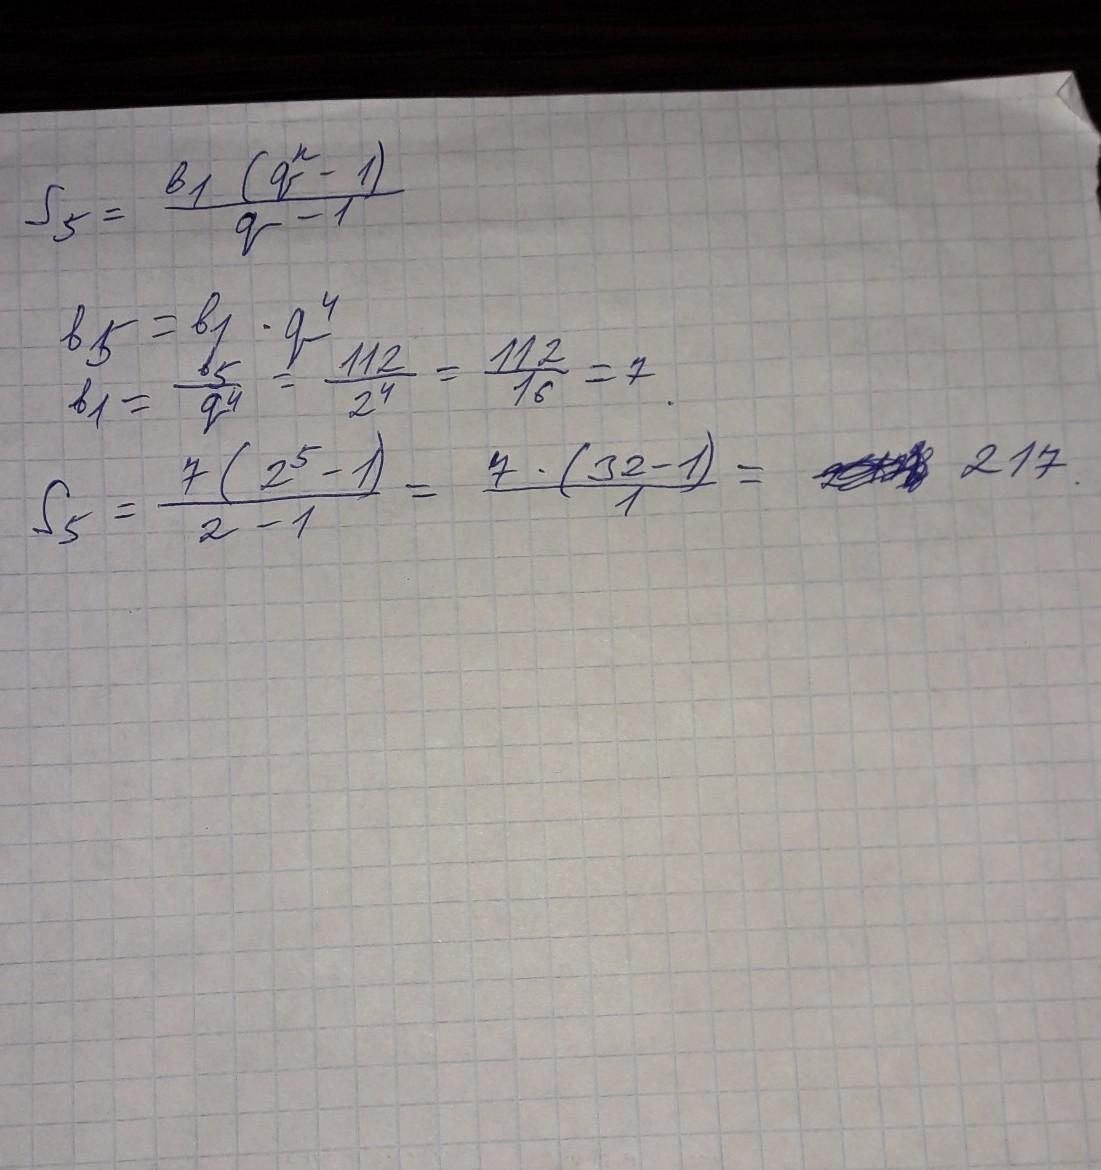 S₅ = в₁ (qⁿ - 1) / q - 1
в₅ = в₁ · q⁴
в₁ = в₅ / q⁴ = 112 / 2⁴ = 112 / 16 = 7.
S₅ = 7 (2⁵ - 1) / 2 - 1 = 7 · (32 - 1) / 1 = 217.